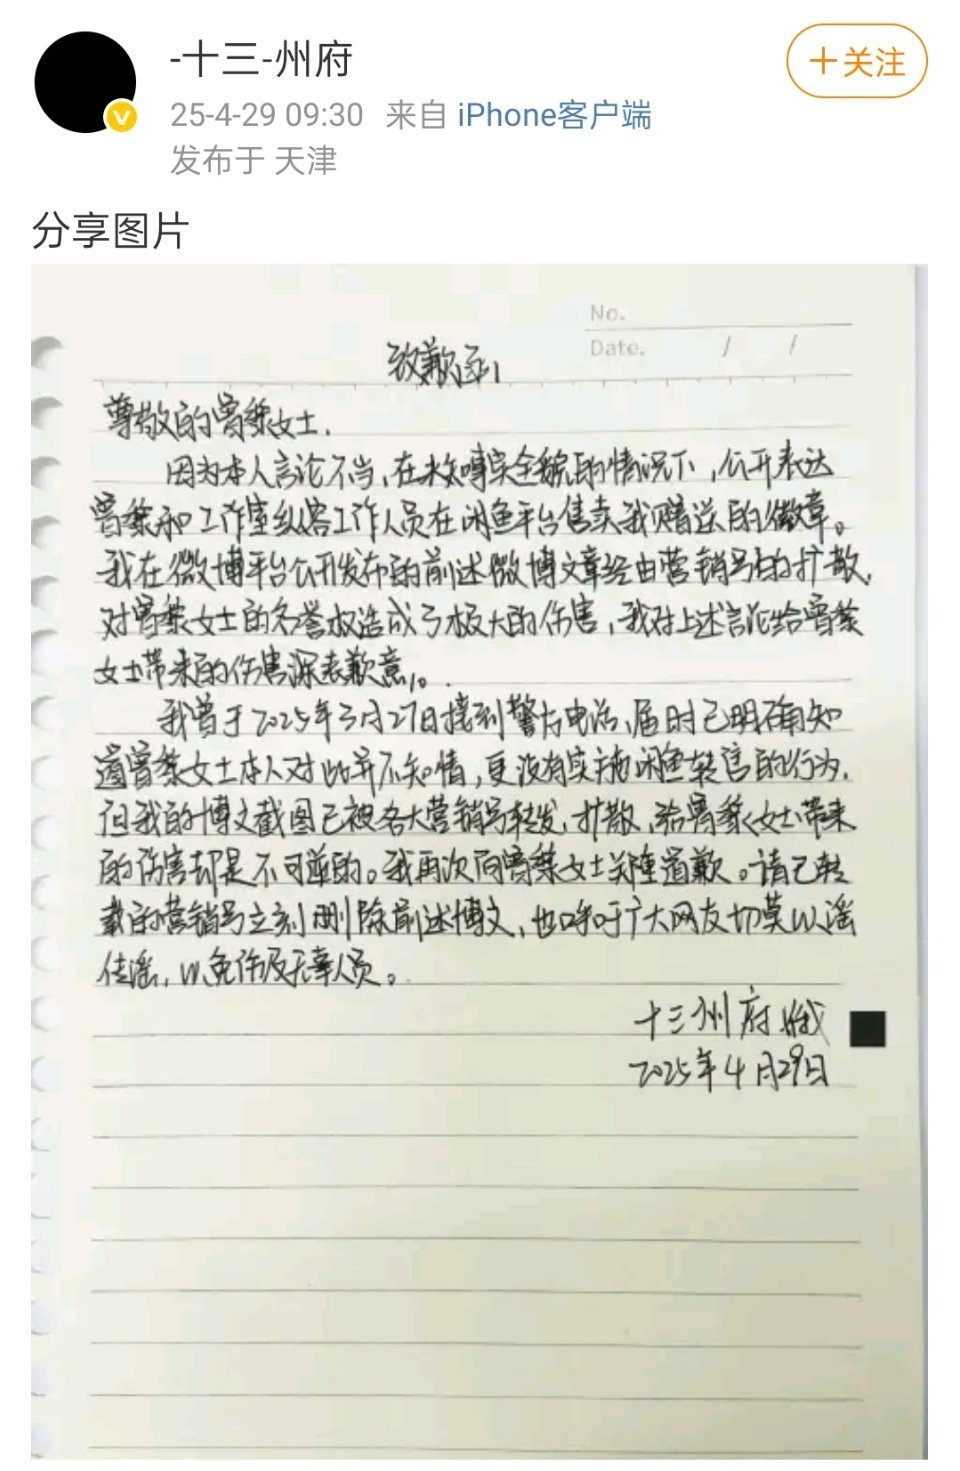 -十三-州府
+关注
25-4-29 09:30 来自 iPhone客户端
发布于 天津
分享图片
No.
Date. / /
致歉函
尊敬的曾黎女士.
因为本人言论不当,在未知晓完全貌的情况下,公开表达
曾黎和工作室纵容工作人员在闲鱼平台售卖我赠送的徽章。
我在微博平台公开发布的前述微博文章经由营销号的扩散,
对曾黎女士的名誉权造成了极大的伤害,我对上述言论给曾黎
女士带来的伤害深表歉意。
我曾于2025年3月27日接到警方电话,届时已明确知
道曾黎女士本人对此并不知情,更没有实施闲鱼转售的行为,
但我的博文截图已被各大营销号转发,扩散,给曾黎女士带来
的伤害却是不可逆的。我再次向曾黎女士郑重道歉。请已转
载的营销号立刻删除前述博文,也呼吁广大网友切莫以谣
传谣,以免伤及无辜人员。
十三州府
2025年4月29日